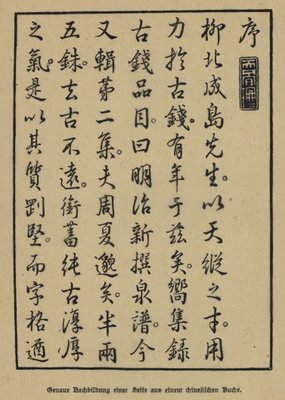 序
柳北成島先生。以天縱之才。用
力於古錢。有年于茲矣。嚮集錄
古錢品目曰明治新撰泉譜。今
又輯第二集。夫周夏邈矣。半兩
五銖。去古不遠。銜蓄純古淳厚
之氣。是以其質剛堅。而字格遒
Genaue Nachbildung einer Seite aus einem chinesischen Buche.